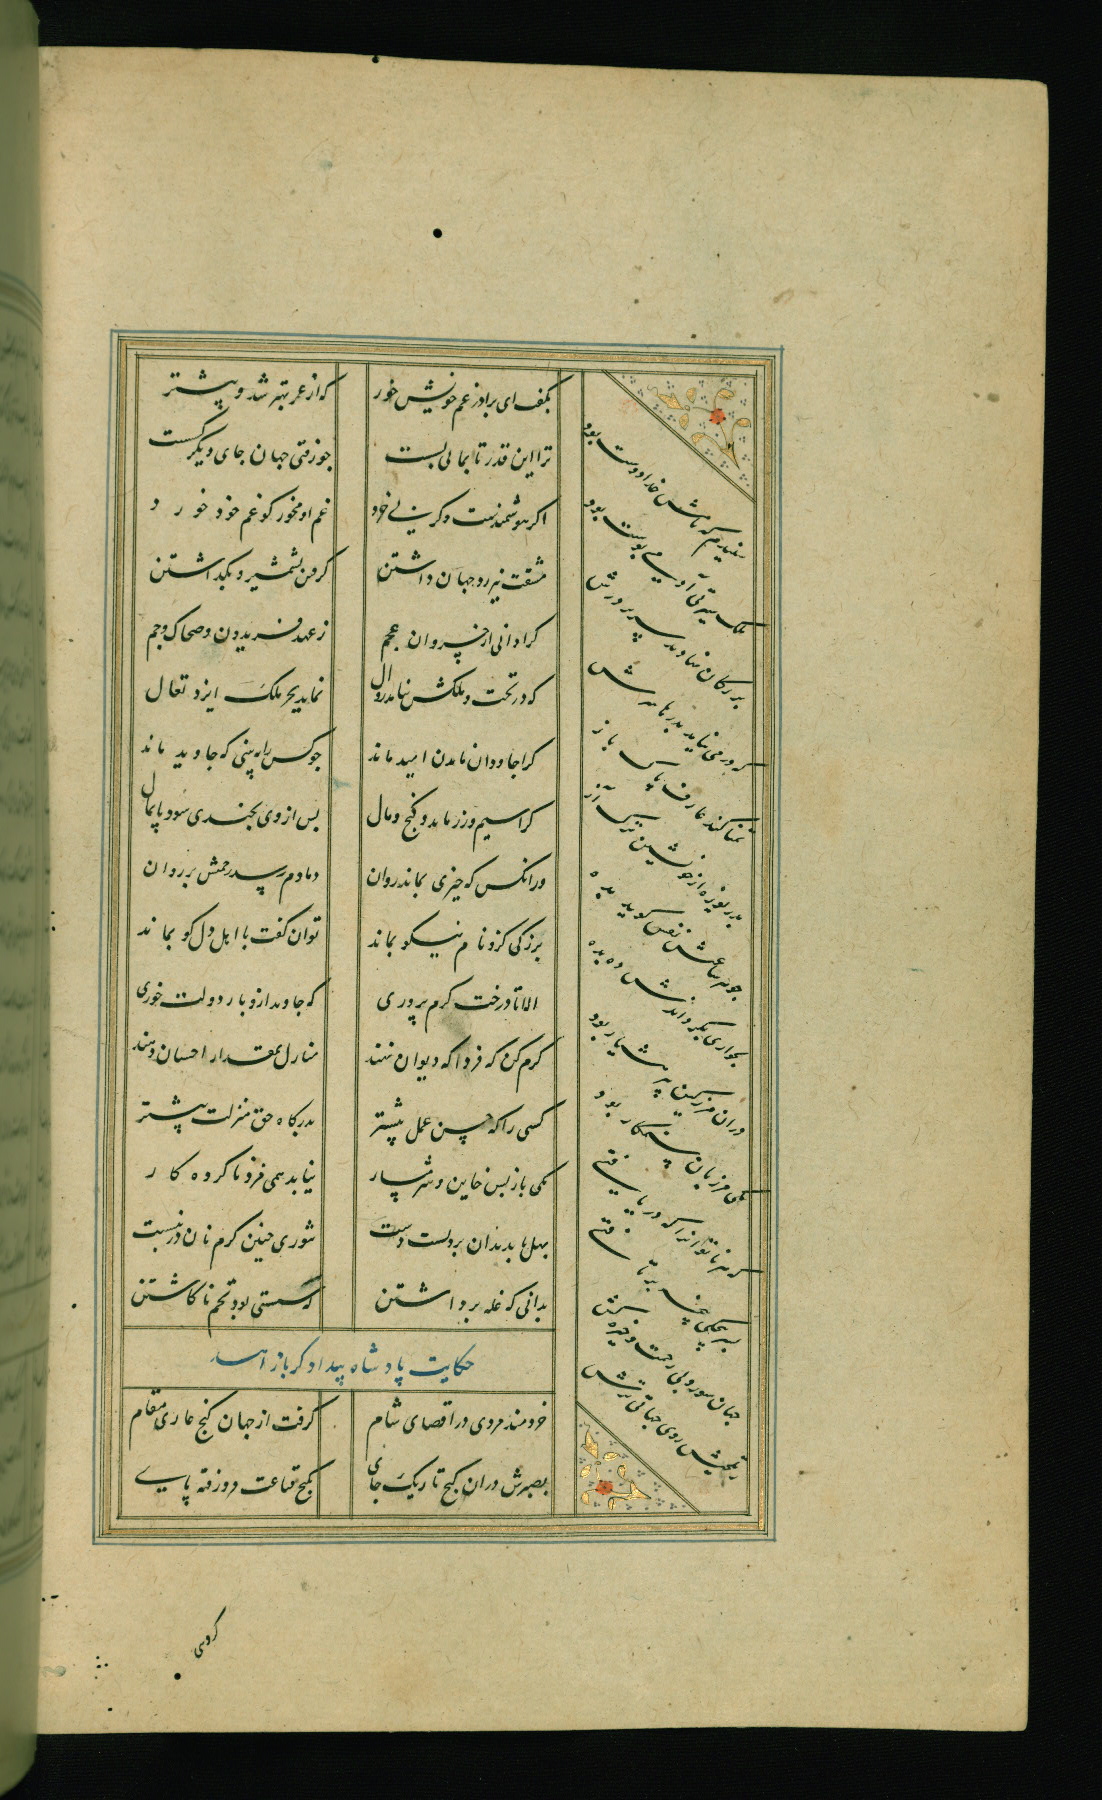 بگفت ای برادر غم خویش خور
که از عمر بهتر شد و بیشتر
ترا این قدر تا بمانی بست
چو رفتی جهان جای دیگر کسست
اگر هوشمندست وگر بی خرد
غم او مخور کو غم خود خورد
مشقت نیرزد جهان داشتن
گرفتن بشمشیر و بگذاشتن
کرا دانی از خسروان عجم
ز عهد فریدون و ضحاک و جم
که در تخت و ملکش نیامد زوال
نماند بجز ملک ایزد تعال
کرا جاودان ماندن امید ماند
چو کس را نبینی که جاوید ماند
کرا سیم و زر ماند و گنج و مال
پس از وی بچندی شود پایمال
وزانکس که خیری بماند روان
دمادم رسد رحمتش بر روان
بزرگی کزو نام نیکو بماند
توان گفت با اهل دل کو بماند
الا تا درخت کرم پروری
که جاوید ازو بار دولت خوری
کرم کن که فردا که دیوان نهند
منازل بمقدار احسان دهند
کسی را که حسن عمل بیشتر
بدرگاه حق منزلت بیشتر
یکی باز پس خاین و شرمسار
نیابد همی مزد ناکرده کار
بهل تا بدندان برد پشت دست
تنوری چنین گرم نان در نبست
بدانی که غله برداشتن
که سستی بود تخم ناکاشتن
حکایت پادشاه بیدادگر با زاهد
خردمند مردی در اقصای شام
گرفت از جهان کنج غاری مقام
بصبرش دران کنج تاریک جای
بکنج قناعت فرو رفته پای
شنیدم که نامش خدادوست بود
ملک سیرتی آدمی پوست بود
بزرگان نهادند سر بر درش
که در می نیامد بدرها سرش
تمنا کند عارف پاک باز
بدریوزه از خویشتن ترک آز
چو هر ساعتش نفس گوید بده
بخواری بگرداندش ده بده
دران مرز کین پیر هشیار بود
یکی مرزبان ستمکار بود
که هر ناتوان را که دریافتی
بسرپنجگی پنجه برتافتی
جهان سوز و بی رحمت و خیره کش
ز تلخیش روی جهانی ترش
گروهی